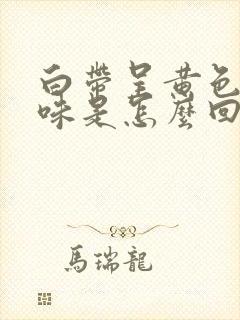 白帶呈黄色
味是怎麼回
馬瑞龍